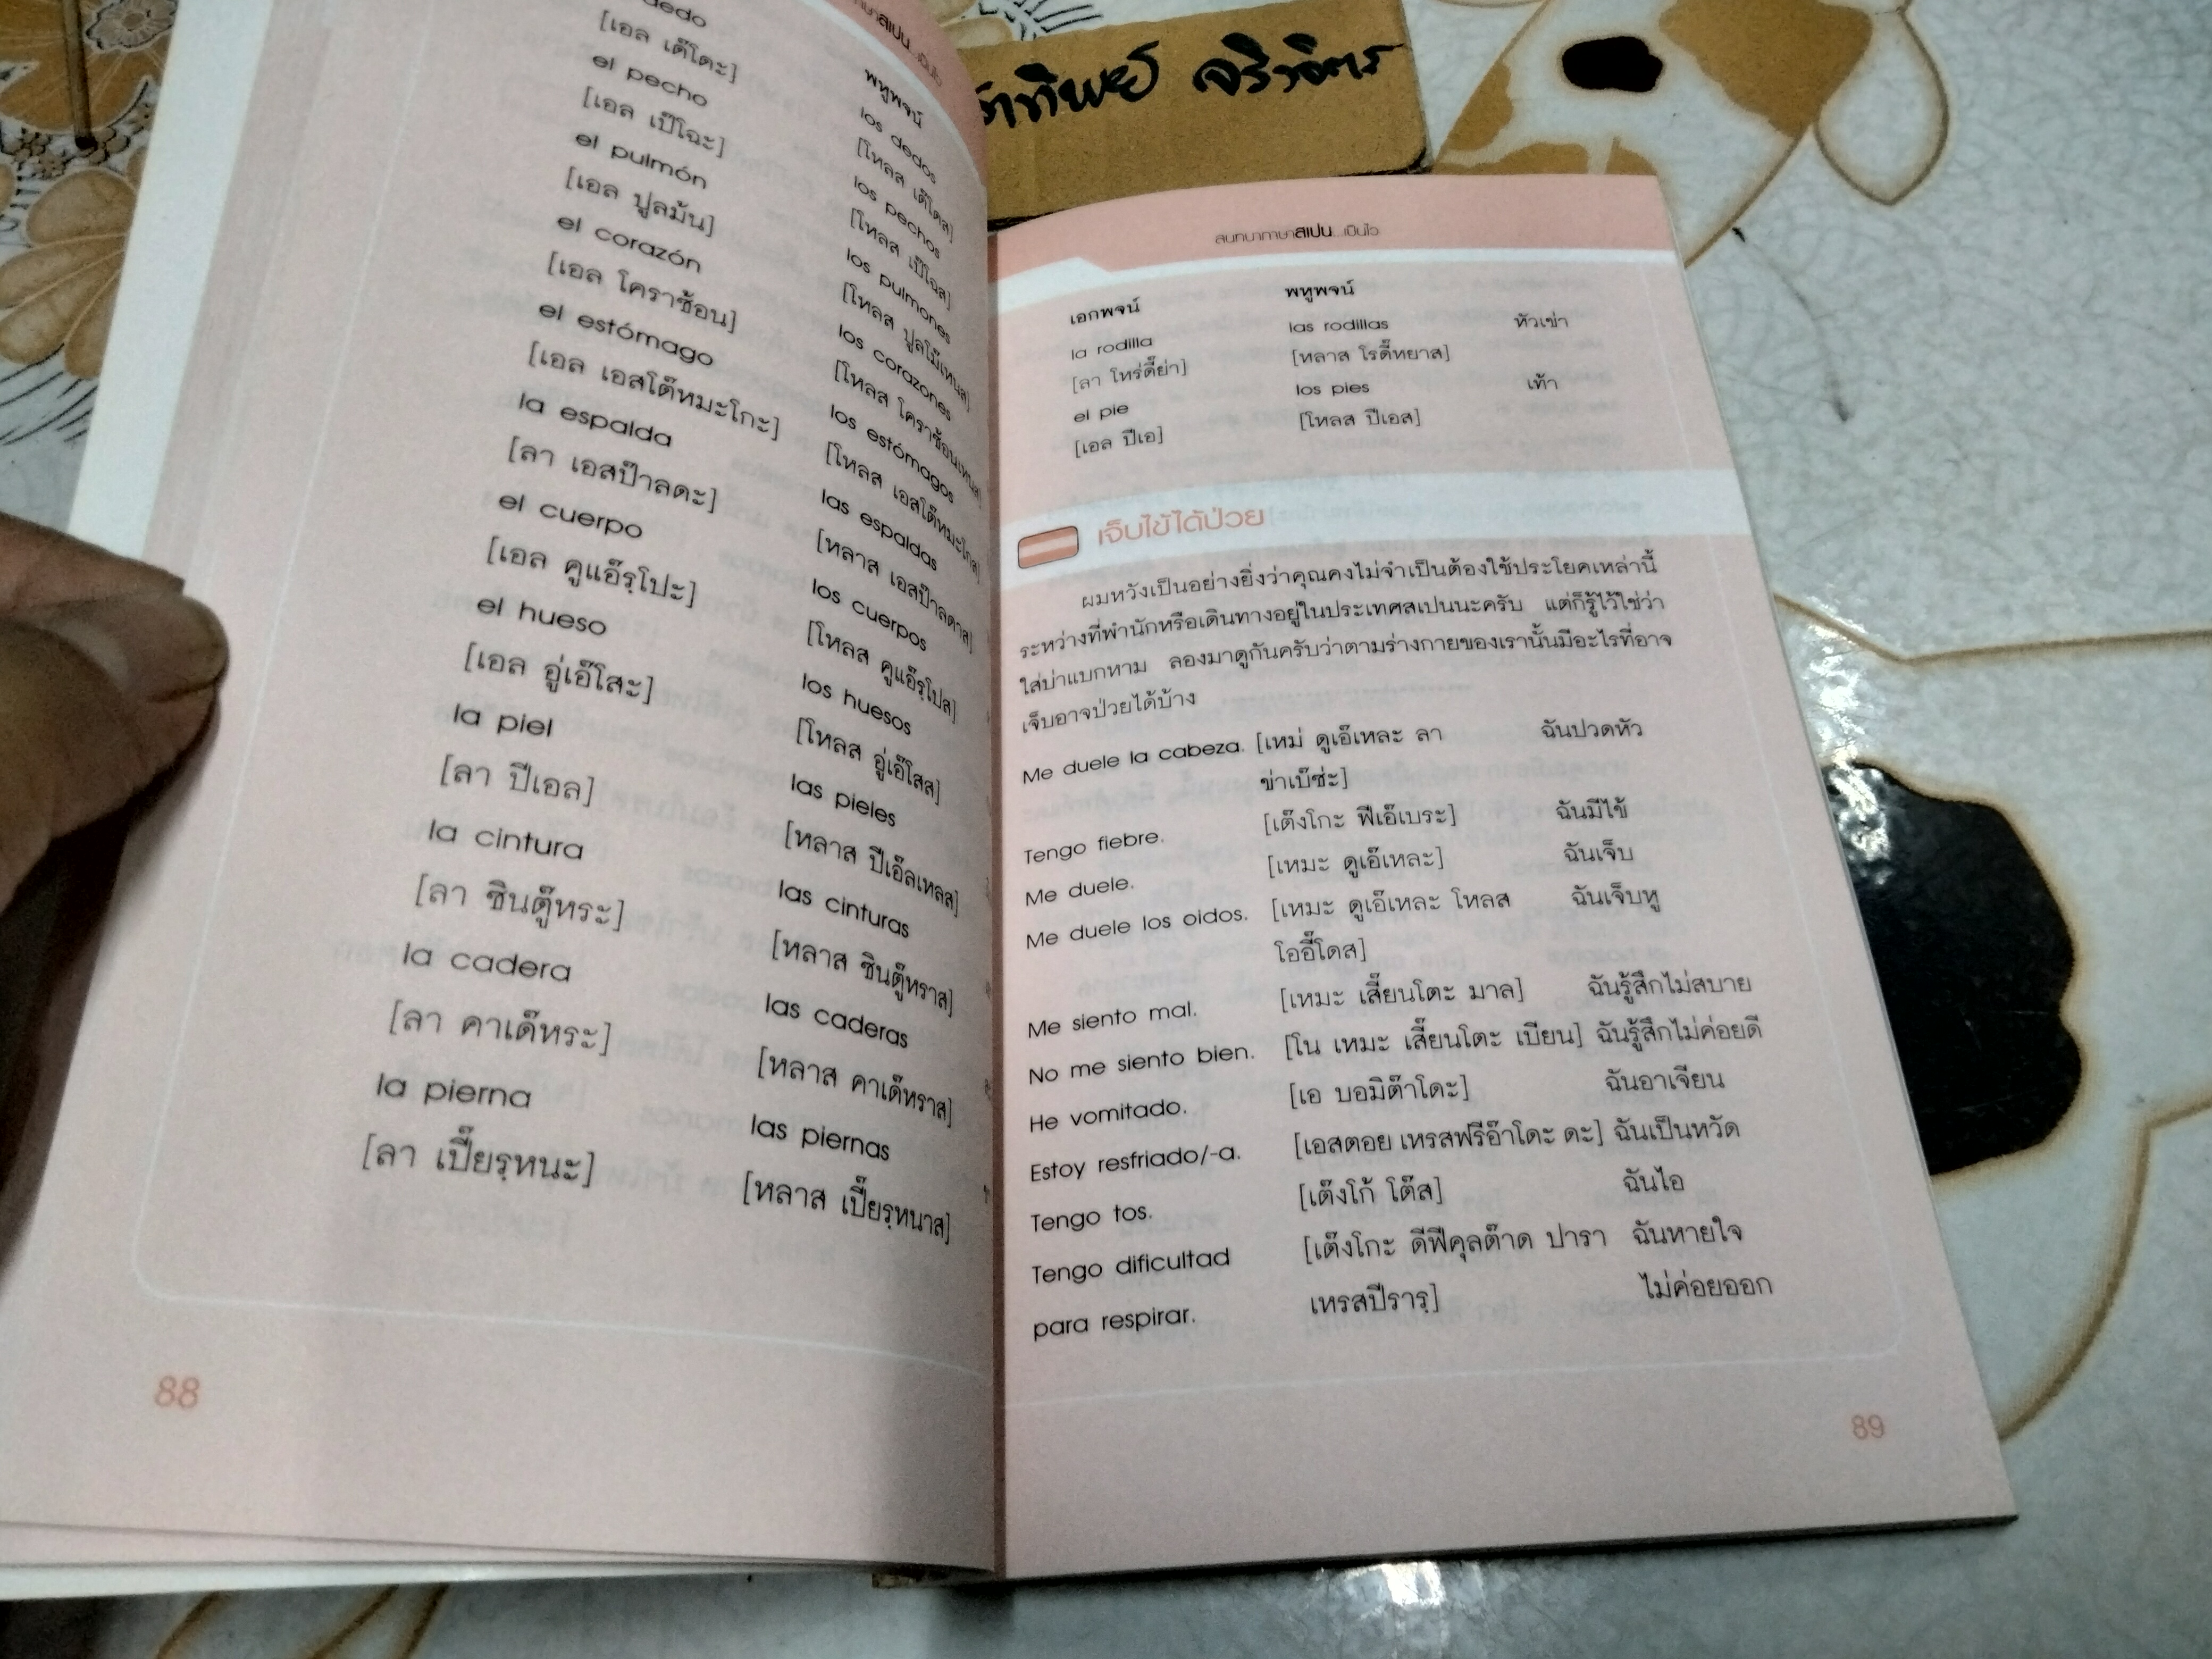 สเปน...เป็นไว
พหูพจน์
dedo
los dedos
[เอล เด๊โดะ]
[โหลส เด๊โดส]
el pecho
los pechos
[เอล เป๊โฉะ]
[โหลส เป๊โฉส]
el pulmón
los pulmones
[เอล ปูลม้น]
[โหลส ปูลโม๊เหนส]
el corazón
los corazones
[เอล โคราซ้อน]
[โหลส โคราซ้อนเหนส]
el estómago
los estómagos
[เอล เอสโต๊หมะโกะ]
[โหลส เอสโต๊หมะโกส]
la espalda
las espaldas
[ลา เอสป๊าลดะ]
[หลาส เอสป๊าลดาส]
el cuerpo
los cuerpos
[เอล คูแอ๊รฺโปะ]
[โหลส คูแอ๊รฺโปส]
el hueso
los huesos
[เอล อู่เอ๊โสะ]
[โหลส อู่เอ๊โสส]
la piel
las pieles
[ลา ปีเอล]
[หลาส ปีเอ็ลเหลส]
la cintura
las cinturas
[ลา ซินตู๊หระ]
[หลาส ซินตู๊หราส]
la cadera
las caderas
[ลา คาเด๊หระ]
[หลาส คาเด๊หราส]
la pierna
las piernas
[ลา เปี๊ยรฺหนะ]
[หลาส เปี๊ยรฺหนาส]
88
จริงจิตร
สนทนาภาษาสเปน...เป็นไว
เอกพจน์ พหูพจน์
la rodilla las rodillas หัวเข่า
[ลา โหร่ดี๊ย่า] [หลาส โรดี๊หยาส]
el pie los pies เท้า
[เอล ปีเอ] [โหลส ปีเอส]
เจ็บไข้ได้ป่วย
ผมหวังเป็นอย่างยิ่งว่าคุณคงไม่จำเป็นต้องใช้ประโยคเหล่านี้
ระหว่างที่พำนักหรือเดินทางอยู่ในประเทศสเปนนะครับ แต่ก็รู้ไว้ใช่ว่า
ใส่บ่าแบกหาม ลองมาดูกันครับว่าตามร่างกายของเรานั้นมีอะไรที่อาจ
เจ็บอาจป่วยได้บ้าง
Me duele la cabeza. [เหม่ ดูเอ๊เหละ ลา ฉันปวดหัว
ข่าเบ๊ซ่ะ]
Tengo fiebre. [เต๊งโกะ ฟีเอ๊เบระ] ฉันมีไข้
Me duele. [เหมะ ดูเอ๊เหละ] ฉันเจ็บ
Me duele los oidos. [เหมะ ดูเอ๊เหละ โหลส ฉันเจ็บหู
โออี๊โดส]
Me siento mal. [เหมะ เสี๊ยนโตะ มาล] ฉันรู้สึกไม่สบาย
No me siento bien. [โน เหมะ เสี๊ยนโตะ เบียน] ฉันรู้สึกไม่ค่อยดี
He vomitado. [เอ บอมิต๊าโดะ] ฉันอาเจียน
Estoy resfriado/-a. [เอสตอย เหรสฟรีอ๊าโดะ ดะ] ฉันเป็นหวัด
Tengo tos. [เต๊งโก้ โต๊ส] ฉันไอ
Tengo dificultad [เต๊งโกะ ดีฟีคุลต๊าด ปารา ฉันหายใจ
para respirar. เหรสปีรารฺ] ไม่ค่อยออก
89